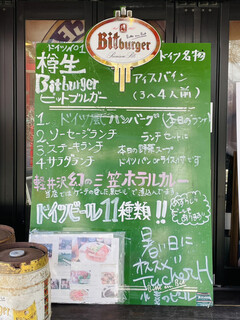 Bitburger
Premium Pils
ドイツNO1
樽生
Bitburger
ビットブルガー
ドイツ名物
アイスバイン
(3〜4人前)
1. ドイツ風ハンバーグ
2. ソーセージランチ
3. ステーキランチ
4. サラダランチ
ランチセットに
本日の野菜スープ
ドイツパン or ライス付です
軽井沢幻の三笠ホテルカレー
ドイツビール11種類!!
暑い日に
オススメ!!